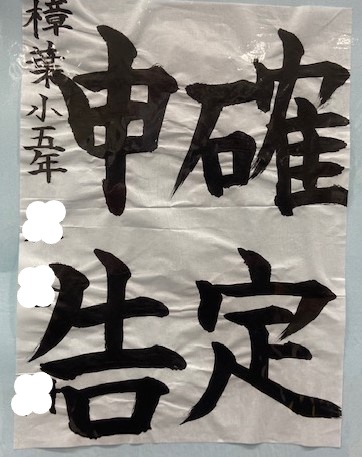 確定
申告
樟葉小五年